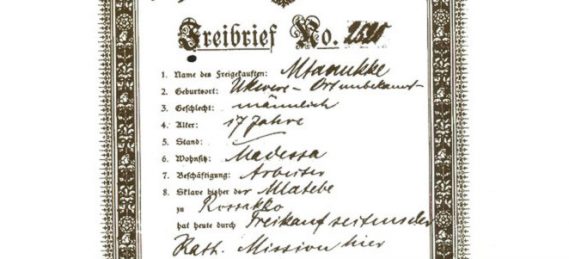 Freibrief No. 2520
1. Name des Freigekauften: Mtamukke
2. Geburtsort: Ukwere - Ort unbekannt
3. Geschlecht: männlich
4. Alter: 17 Jahre
5. Stand:
6. Wohnsitz: Madessa
7. Beschäftigung: Arbeiter
8. Sklave bisher der Mlatebe
zu Kossakko
hat heute durch Freikauf seitens der
Kath. Mission hier